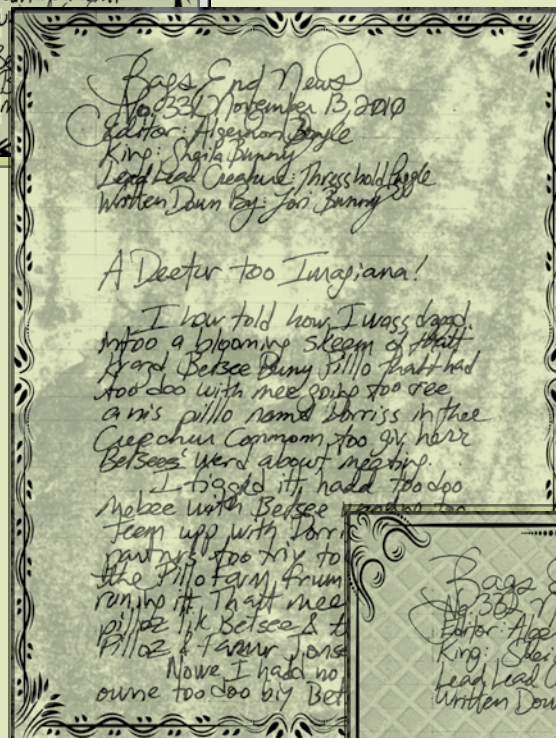 Bags End News
No. 331 November 13, 2010
Editor: Algernon
King: Sheila Bunny
Lead Lead Creature: Thresshold
Written Down By: Bunny
A Deetur too Imagiana!
I how told how I wass
intoo a blooming skeem of thatt
krand Betsee Buny Pilllo thatt had
too doo with mee going too see
a nis pilllo namd borriss in thee
Creechur Commonn too giv harr
Betsees' werd about meeting.
I figgid itt hadd too doo
Mebee with Betsee too
teem upp with borri
partnrs too triy to
the Pillo Farm frum
runing itt. Thatt mee
pilloz lik Betsee & t
Pilloz & Farmur Jonse
Nowe I hadd no
owne too doo biy Bet
Bags
No. 332 N
Editor: Alge
King: Shei
Lead Lead C
Written Dow